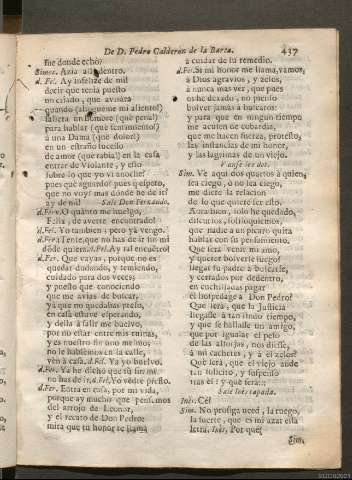 De D. Pedro Calderon de la Barca. 437
me donde echò?
Simon. Azia allà dentro.
d. Fel. Ay infelize de mi!
decir que tenia puesto
un criado, que avisàra
quando (aliento me mi aliento!)
saliera un hombre (què pena!)
para hablar (què sentimiento!)
à una Dama (què dolor!)
en un estraño sucesso
de amor (què rabia!) en la casa
entrar de Violante, y esso
sobre lo que yo vi anoche?
pues què aguardo? pues què espero,
que no voy? mas donde no he de ir?
ay de mi! Sale Don Fernando.
d. Fer. O quànto me huelgo,
Felix, de averte encontrado!
d. Fel. Yo tambien; pero ya vengo.
d. Fer. Tente, que no has de ir sin mi
dòde quiera. d. Fel. Ay tal encuètro!
d. Fer. Que vayas, porque no es
quedar dudando, y temiendo,
cuidado para dos veces;
y puesto que conociendo
que me avias de buscar,
yà que no quedabas preso,
en casa estuve esperando,
y della à salir me buelvo,
por no estar entre mis ruinas,
y es nuestro sin uno mismo;
no le hablèmos en la calle,
ven à casa. d. Fel. Ya yo buelvo.
d. Fer. Ya he dicho que tù sin mi
no has de ir. d. Fel. Yo vèdrè presto.
d. Fer. Entra en casa, por mi vida,
porque ay mucho que pensemos
del arrojo de Leonor,
y el recato de Don Pedro:
mira que tu honor te llama
à cuidar de su remedio.
d. Fel. Si mi honor me llama, vamos,
à Dios agravios, y zelos,
à nunca mas ver, que pues
os he dexado, no pienso
bolver jamàs à buscaros:
y para que en ningun tiempo
me acusen de cobardia,
que me hacen fuerza, protesto,
las instancias de mi honor,
y las lagrimas de un viejo.
Vanse los dos.
Sim. Ve aqui dos quartos à quien,
sea ciego, ò no lea ciego,
me diere la relacion
de lo que quiere ser esto.
Aora bien, solo he quedado,
discursos, soliloquiemos,
que nadie à un picaro quita
hablar con su pensamiento.
Que serà venir mi amo,
y querer bolverse luego?
llegar su padre à buscarle,
y cerrados por dedentro,
en cuchilladas pagar
el hospedage à Don Pedro?
Què serà, que la Justicia
llegasse à tan lindo tiempo,
y que se hallasse un amigo,
que por igualar el peso
de las alforjas, nos diesse,
à mi cachetes, y à èl zelos?
Què serà, que el viejo ande
tan solicito, y suspenso
tras èl? y què serà::
Sale Inès tapada.
Inès. Cè!
Sim. No prosiga uced, la ruego,
la suerte, que es mi azar essa
letra. Inès. Por què?
Sim.